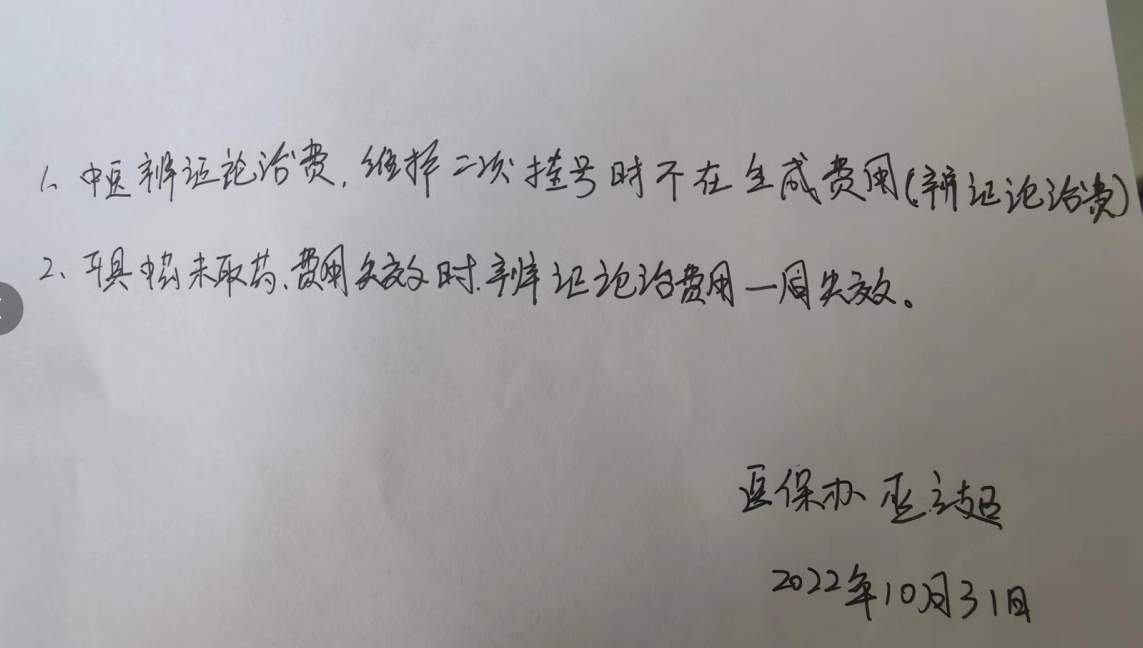 1、中医辨证论治费,维择二次挂号时不在生成费用(辨证论治费)
2、开具中药未取药、费用失效时.辨证论治费用一同失效。
医保办
2022年10月31日